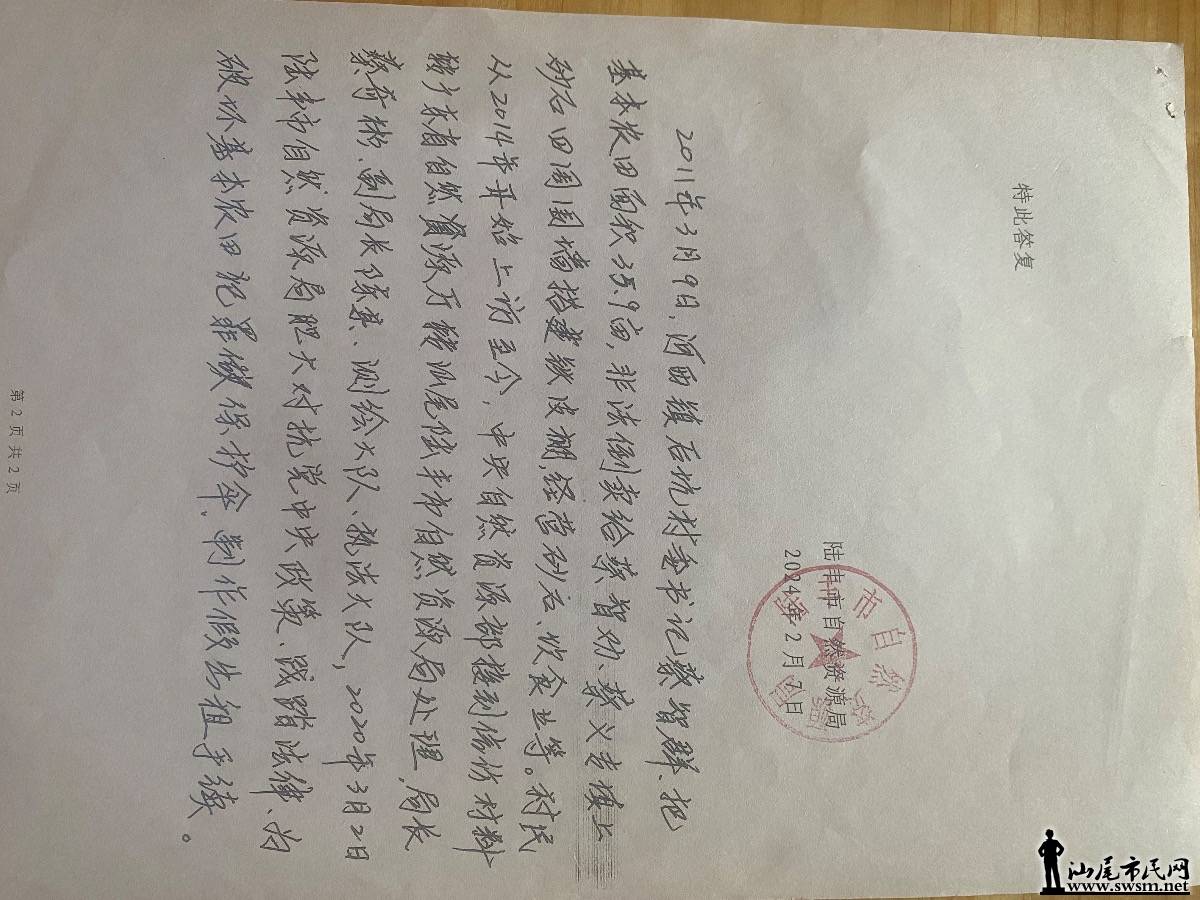 特此答复
陆丰市自然资源局
2024年2月5日
2011年3月9日，河西镇后坑村委书记蔡智群、把
基本农田面积35.9亩，非法倒卖给蔡智劝、蔡义专填上
砂石四周围墙搭建铁皮棚，经营砂石、饮食业等。村民
从2014年开始上访至今，中央自然资源部接到信访材料
转广东省自然资源厅转汕尾陆丰市自然资源局处理，局长
蔡奇彬、副局长陈真、测绘大队、执法大队，2020年3月2日
陆丰市自然资源局胆大对抗党中央政策、践踏法律、为
破坏基本农田犯罪做保护伞，制作假出租手续。
第 2 页 共 2 页
汕尾市民网
www.swsm.net